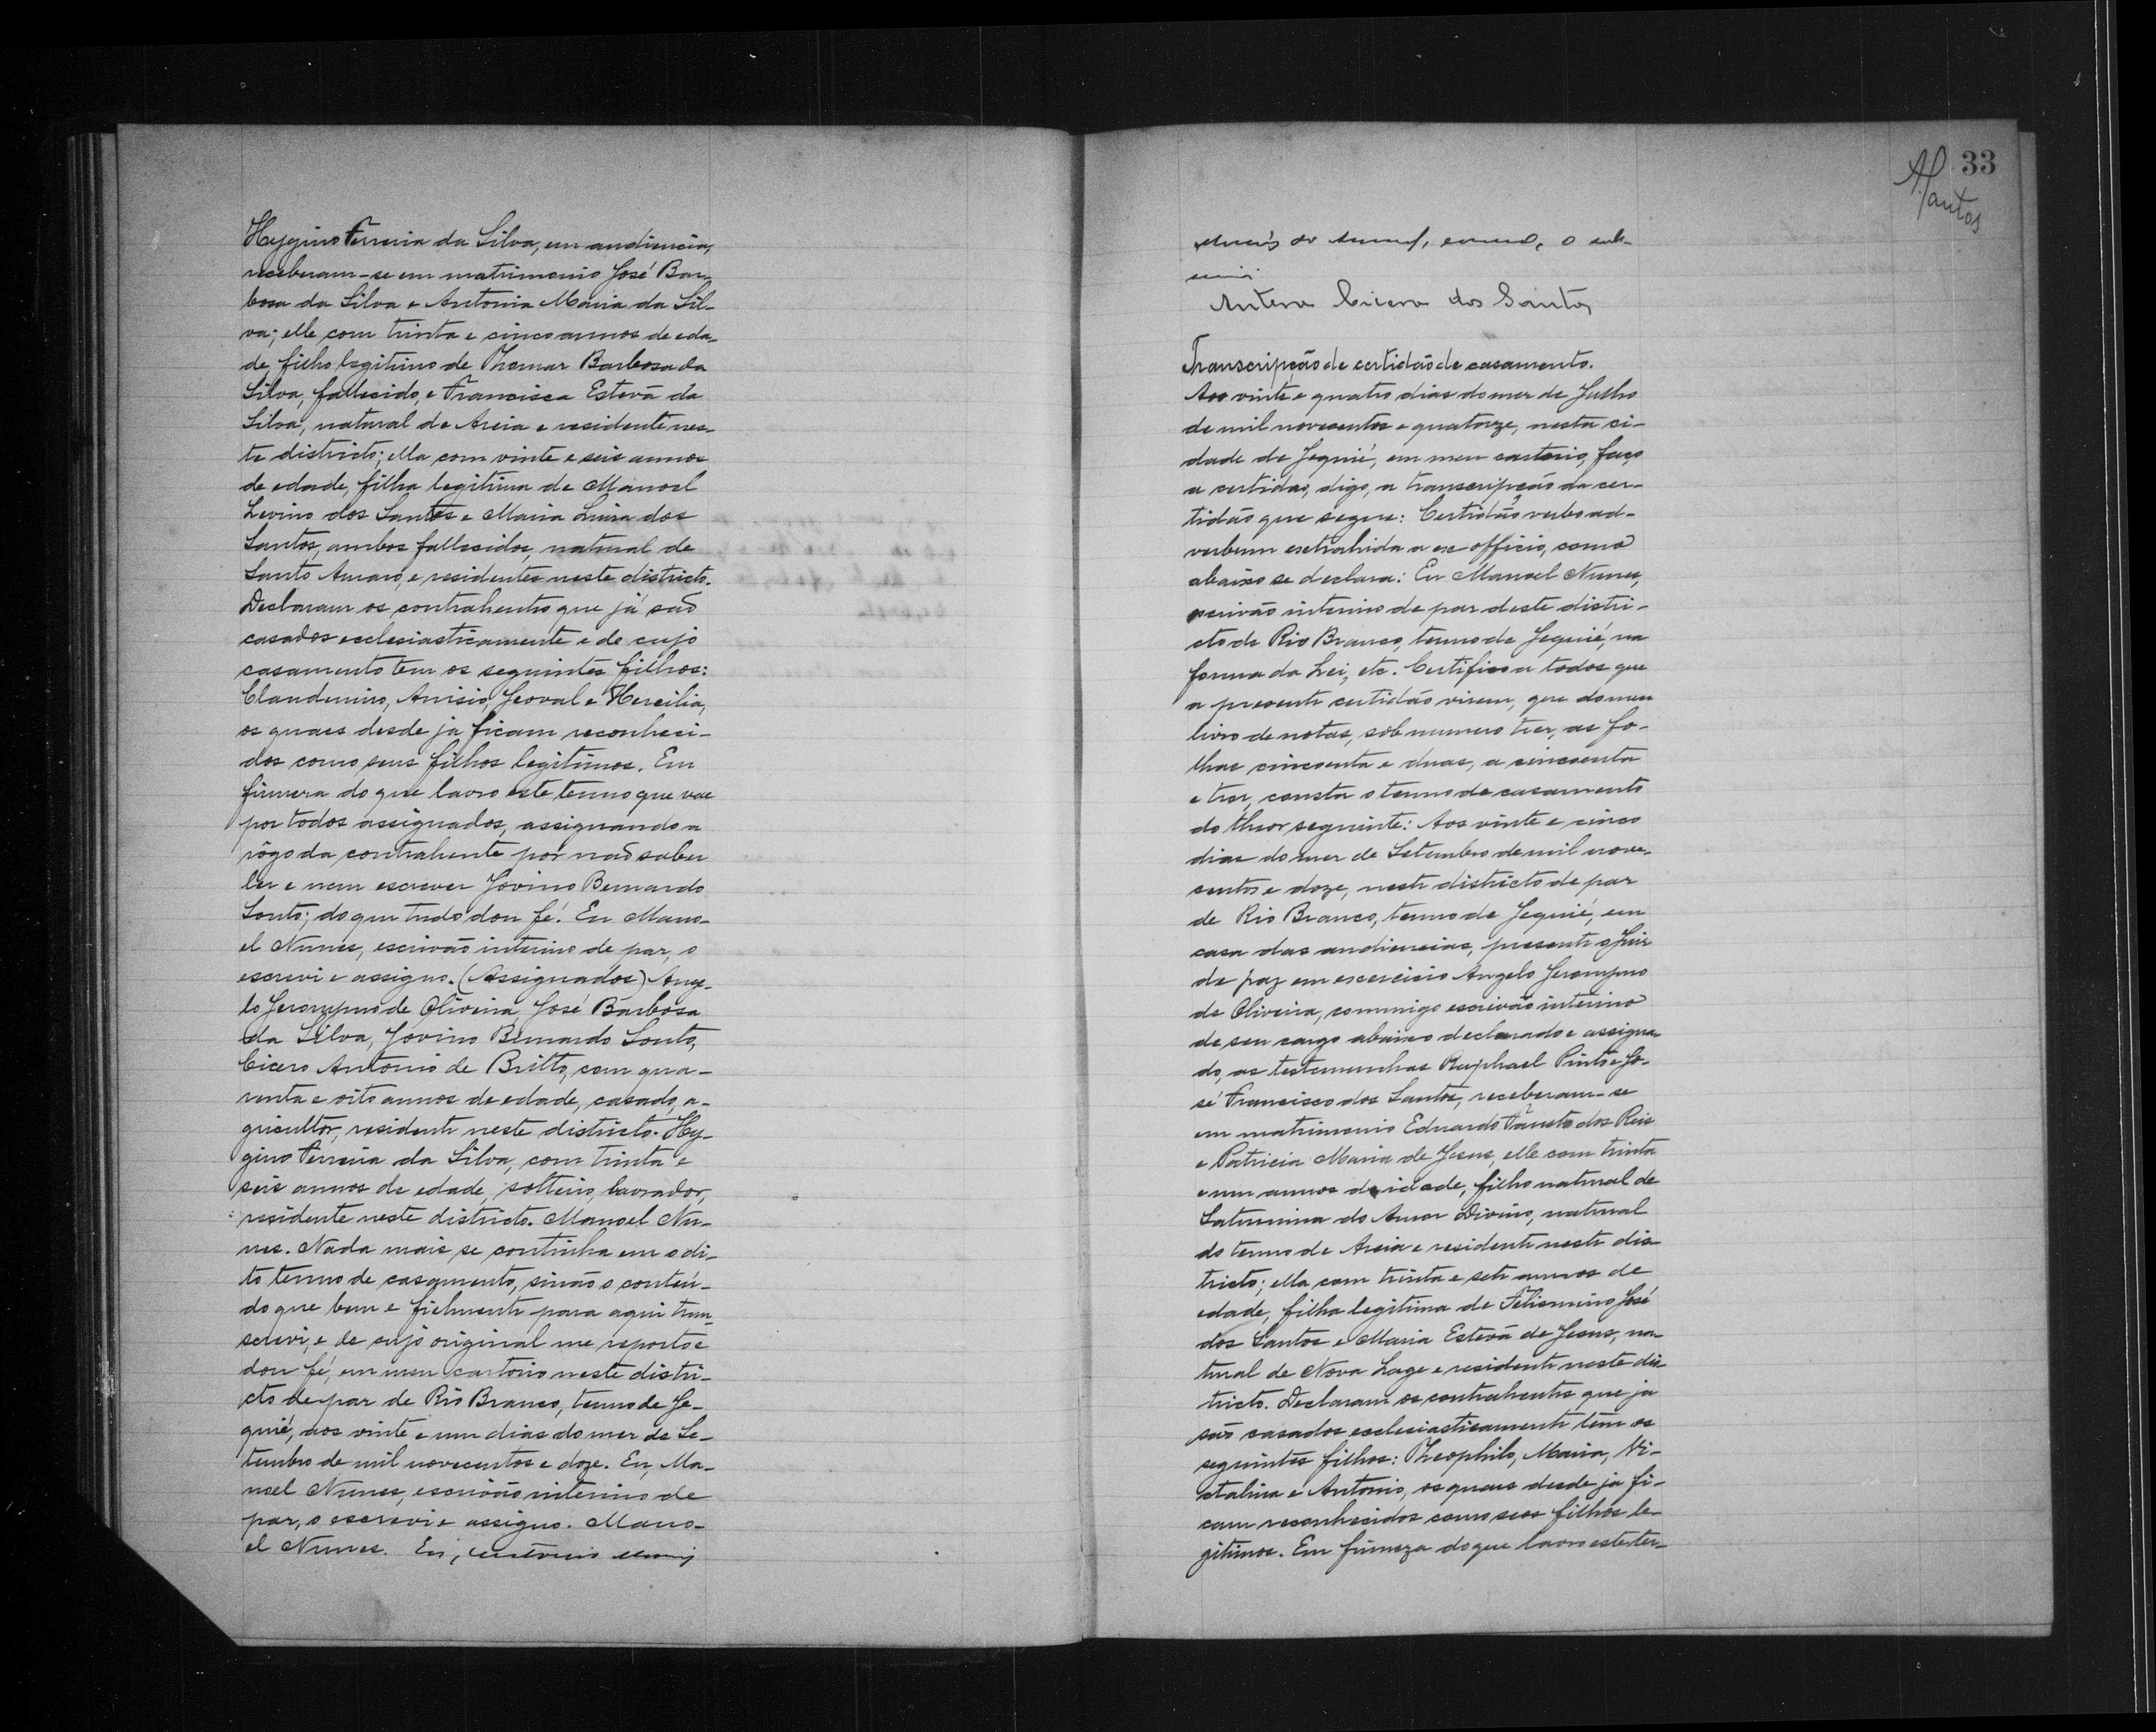 Hygino Ferreira da Silva, em audiencia,
receberam-se em matrimonio José Bar-
bosa da Silva e Antonia Maria da Sil-
va; elle com trinta e cinco annos de eda-
de, filho legitimo de Thomaz Barbosa da
Silva, fallecido, e Francisca Estevã da
Silva, natural de Areia e residente nes-
te districto; ella com vinte e seis annos
de edade, filha legitima de Manoel
Levino dos Santos e Maria Luisa dos
Santos, ambos fallecidos, natural de
Santo Amaro, e residentes neste districto.
Declaram os contrahentes que já são
casados ecclesiasticamente e de cujo
casamento tem os seguintes filhos:
Claudemiro, Anisio, Jeoval e Hercilia,
os quaes desde já ficam reconheci-
dos como seus filhos legitimos. Em
firmeza do que lavro este termo que vae
por todos assignados, assignando a
rôgo da contrahente por não saber
ler e nem escrever Jovino Bernardo
Souto; do que tudo dou fé. Eu Mano-
el Nunes, escrivão interino de paz, o
escrevi e assigno. (Assignados) Ange-
lo Jeronymo de Oliveira, José Barbosa
da Silva, Jovino Bernardo Souto,
Cicero Antonio de Britto, com qua-
renta e oito annos de edade, casado, a-
gricultor, residente neste districto. Hy-
gino Ferreira da Silva, com trinta e
seis annos de edade, solteiro, lavrador,
residente neste districto. Manoel Nu-
nes. Nada mais se continha em o di-
to termo de casamento, sinão o conteú-
do que bem e fielmente para aqui tran-
screvi, e de cujo original me reporto e
dou fé, em meu cartorio neste distri-
cto de paz de Rio Branco, termo de Je-
quié, aos vinte e um dias do mez de Se-
tembro de mil novecentos e doze. Eu, Ma-
noel Nunes, escrivão interino de
paz, o escrevi e assigno. Mano-
el Nunes. Eu,
33
o sub-
Antero Cicero dos Santos
Transcripção de certidão de casamento.
Aos vinte e quatro dias do mez de Julho
de mil novecentos e quatorze, nesta ci-
dade de Jequié, em meu cartorio, faço
a certidão, digo, a transcripção da cer-
tidão que segue: Certidão verbo ad-
verbum extrahida a ex officio, como
abaixo se declara: Eu Manoel Nunes,
escrivão interino de paz deste distri-
cto de Rio Branco, termo de Jequié, na
forma da Lei, etc. Certifico a todos que
a presente certidão virem, que do meu
livro de notas, sob numero trez, as fo-
lhas cincoenta e duas, a cincoenta
e trez, consta o termo de casamento
do theor seguinte: Aos vinte e cinco
dias do mez de Setembro de mil nove-
centos e doze, neste districto de paz
de Rio Branco, termo de Jequié, em
casa das audiencias, presente o Juiz
de paz em escercicio Angelo Jeronymo
de Oliveira, commigo escrivão interino
de seu cargo abaixo declarado e assigna-
do, as testemunhas Raphael Pinto e Jo-
sé Francisco dos Santos, receberam-se
em matrimonio Eduardo Fausto dos Reis
e Patricia Maria de Jesus, elle com trinta
e um annos de idade, filho natural de
Saturnina do Amor Divino, natural
do termo de Areia e residente neste dis-
tricto; ella com trinta e sete annos de
edade, filha legitima de Felismino José
dos Santos e Maria Estevã de Jesus, na-
tural de Nova Lage e residente neste dis-
tricto. Declaram os contrahentes que já
são casados ecclesiasticamente têm os
seguintes filhos: Theophilo, Maria, Vi-
ctalina e Antonio, os quaes desde já fi-
cam reconhecidos como seos filhos le-
gitimos. Em firmeza do que lavro este ter-